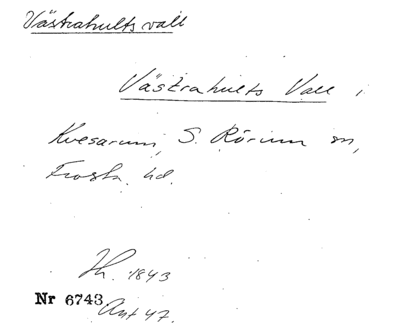 Västrahults vall
Västrahults Vall i
Kvesarum, S. Rörum sn,
Frosta hd.
Th. 1843
Nr 6743 Ant 47.